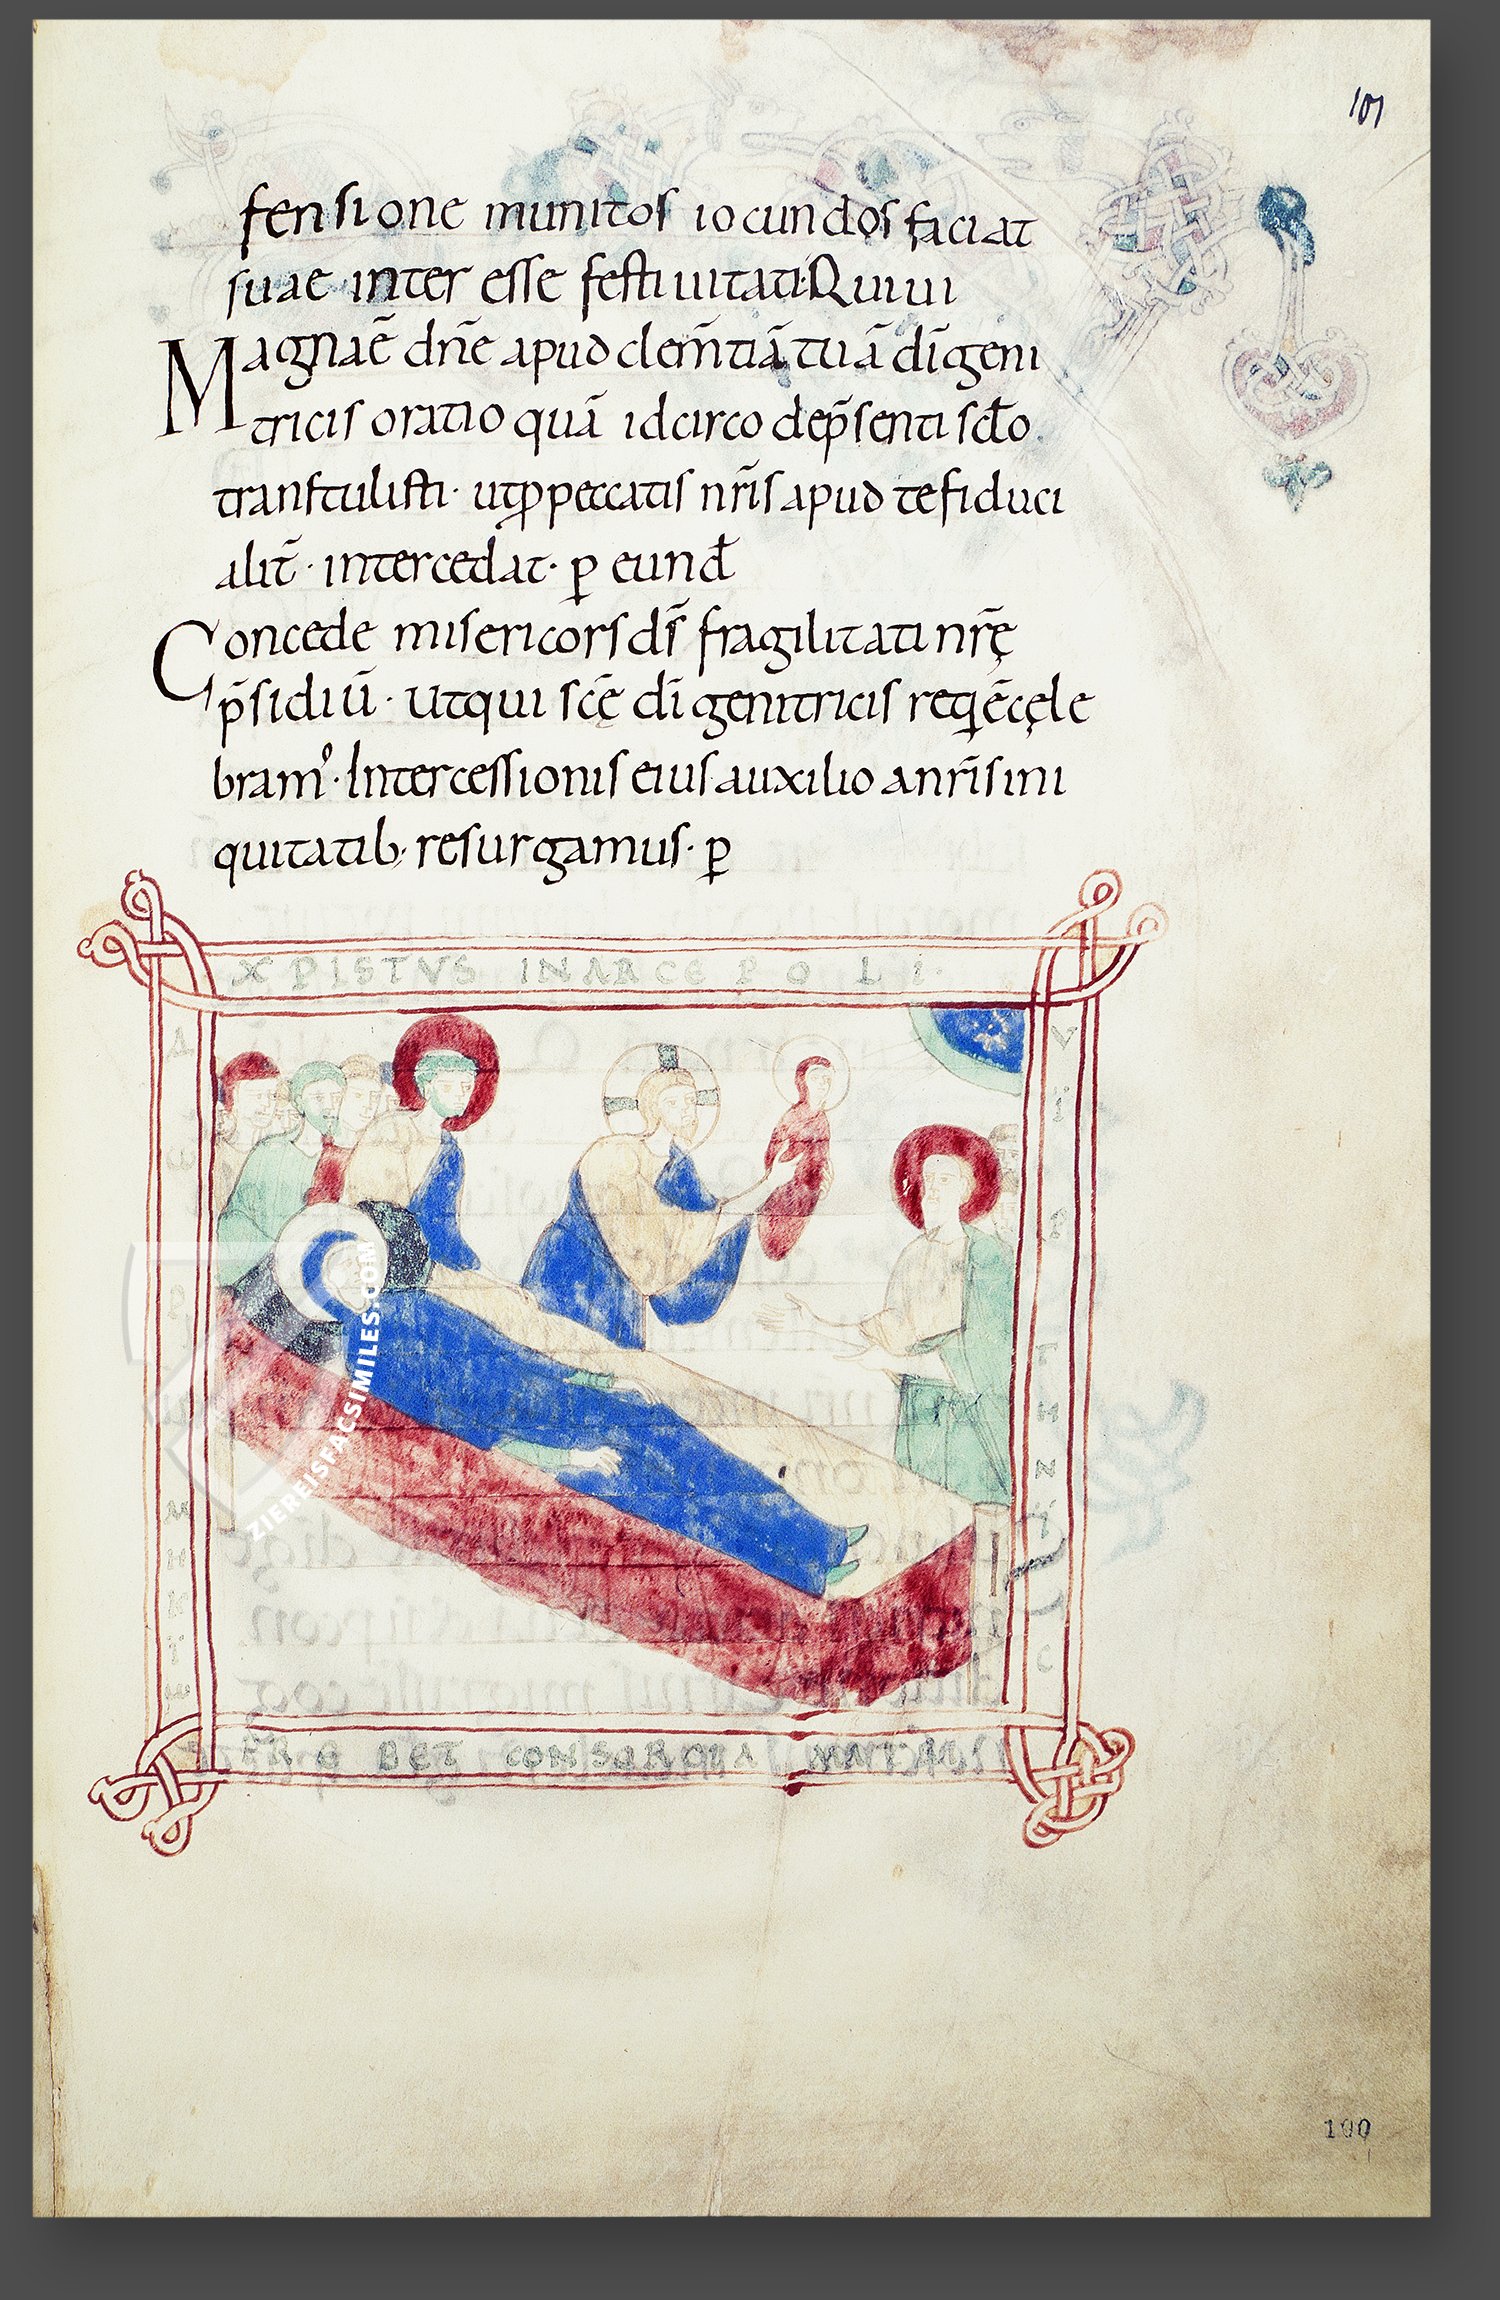 101
fensione munitos iocundos faciat
suae inter esse festiuitati· Qui ui
Magnaē dn̄e apud clem̄tiā tuā dī geni
tricis oratio quā idcirco dep̄senti scło
transtulisti· utp̱ peccatis nr̄is apud te fiduci
alit̄· intercedat· ꝑ eund̄
Concede misericors ds̄ fragilitati nrę̄
p̄sidiū· Ut qui scę̄ dī genitricis reqͥē cęle
bram᾽· Intercessionis eius auxilio a nr̄is ini
quitatib; resurgamus· ꝑ
XPISTVS IN ARCE POLI·
CONSORCIA
ZIEREISFACSIMILES.COM
100